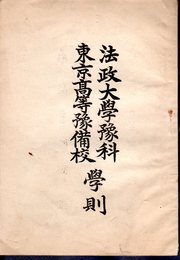 法政大學豫科
東京高等豫備校
學則